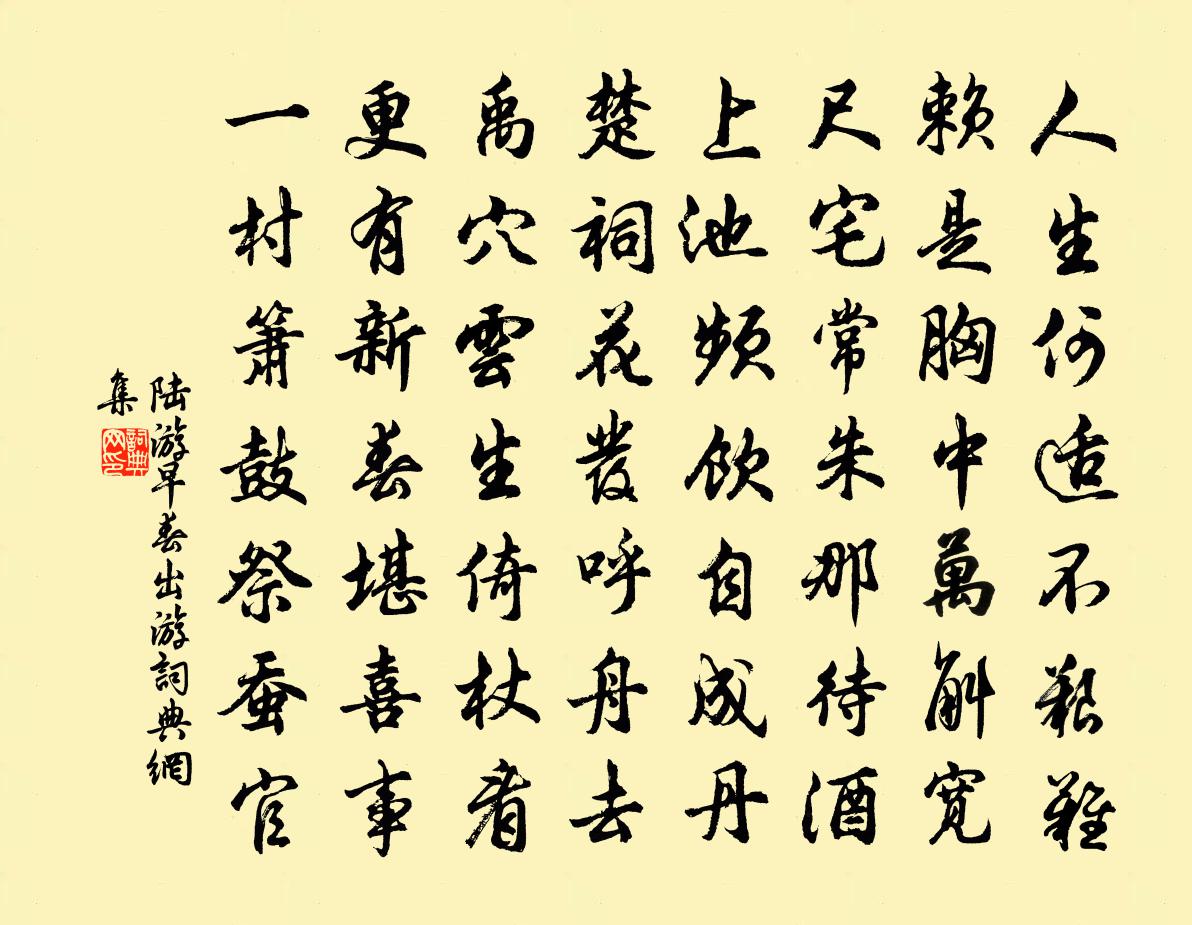 人生何适不艱難
賴是胸中萬斛寬
尺宅常朱那待酒
上池頻飲自成丹
楚祠花發呼舟去
禹穴雲生倚杖看
更有新春堪喜事
一村簫鼓祭蚕官
陆游早春出游詞典網
集
詞典
网印